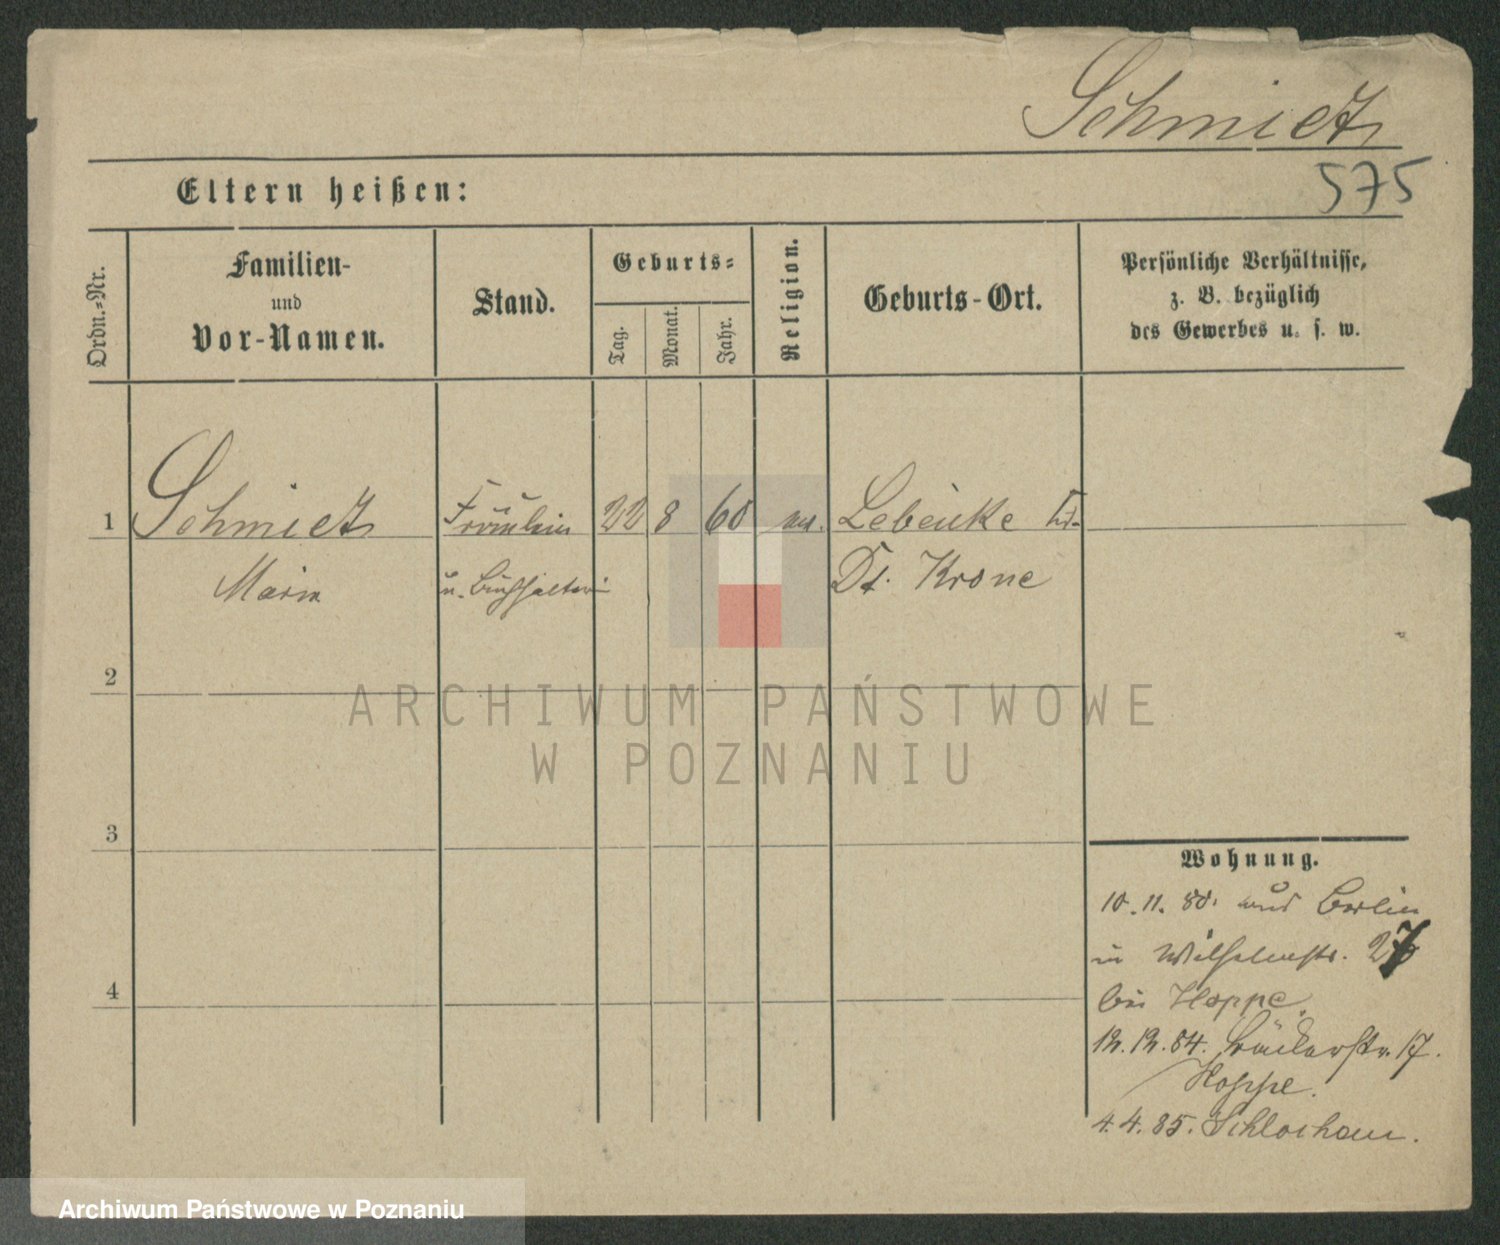 Schmidt
575
Eltern heißen:
Ordn.-Nr.
Familien-
und
Vor-Namen.
Stand.
Geburts-
Tag.
Monat.
Jahr.
Religion.
Geburts-Ort.
Persönliche Verhältnisse,
z. B. bezüglich
des Gewerbes u. s. w.
1
Schmidt
Fräulein
22 8 60
Lebehnke
Maria
u. Buchhalterin
Dt. Krone
2
ARCHIWUM PAŃSTWOWE
W POZNANIU
3
Wohnung.
10. 11. 80. aus Berlin
in Wilhelmstr. 27
bei Hoppe.
12. 12. 84. Bäckerstr. 17.
Hoppe.
4. 4. 85. Schlochau.
4
Archiwum Państwowe w Poznaniu